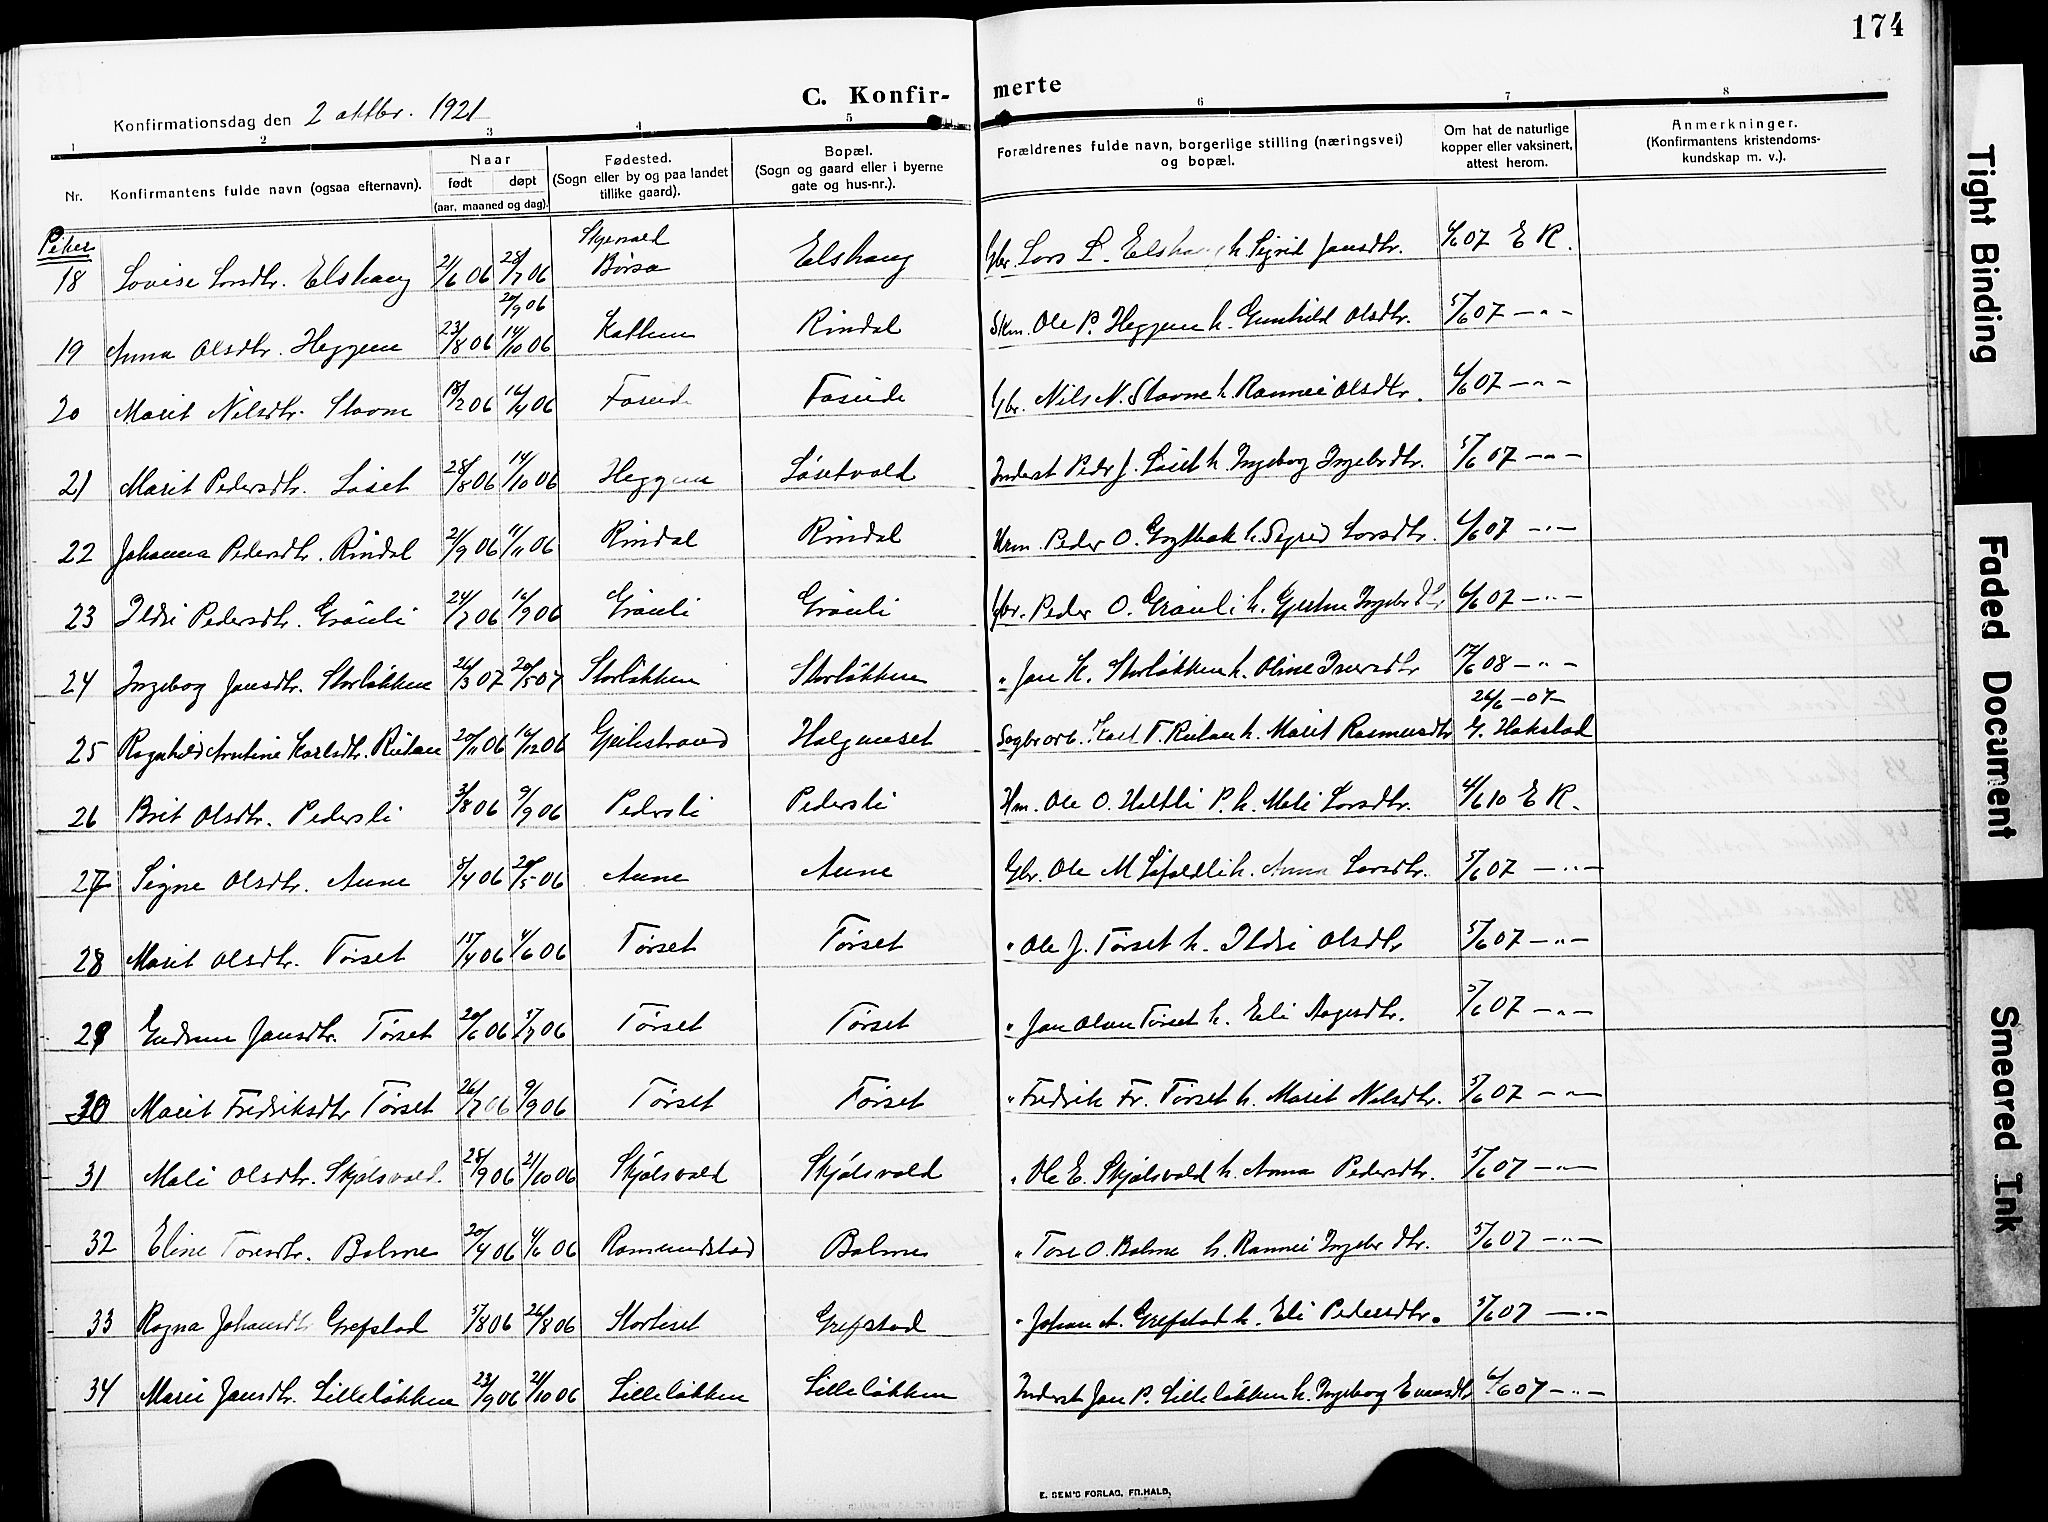 174
C. Konfir- merte
Konfirmationsdag den 2 oktbr. 1921
1 2 3 4 5 6 7 8
Nr. Konfirmantens fulde navn (ogsaa efternavn).
Naar
født døpt
(aar, maaned og dag).
Fødested.
(Sogn eller by og paa landet
tillike gaard).
Bopæl.
(Sogn og gaard eller i byerne
gate og hus-nr.).
Forældrenes fulde navn, borgerlige stilling (næringsvei)
og bopæl.
Om hat de naturlige
kopper eller vaksinert,
attest herom.
Anmerkninger.
(Konfirmantens kristendoms-
kundskap m. v.).
Piker
18 Lovise Larsdtr. Elshaug 21/6 06 28/7 06 Børsa Elshaug Gbr. Lars L. Elshaug h. Sigrid Jonsdtr. 6/6 07 E R.
20/9 06
19 Anna Olsdtr. Heggem 23/8 06 14/10 06 Rindal Skm. Ole P. Heggem h. Gunhild Olsdtr. 5/6 07 — " —
20 Marit Nilsdtr. Stavne 18/2 06 16/4 06 Faseide Faseide Gbr. Nils N. Stavne h. Rannei Olsdtr. 6/6 07 — " —
21 Marit Pedersdtr. Løset 28/8 06 14/10 06 Heggem Løsetvald Inderst Peder J. Løset h. Ingebog Ingebrdtr. 5/6 07 — " —
22 Johanna Pedersdtr. Rindal 21/9 06 11/11 06 Rindal Rindal Krm. Peder O. Grytbak h. Sigrid Larsdtr. 6/6 07 — " —
23 Ildri Pedersdtr. Grønli 24/7 06 16/9 06 Grønli Grønli Gbr. Peder O. Grønli h. Gjertru Ingebrdtr. 6/6 07 — " —
24 Ingebog Jonsdtr. Storløkken 26/3 07 20/5 07 Storløkken Storløkken " Jon K. Storløkken h. Oline Iversdtr 12/6 08 — " —
26/6 — 07 —
25 Ragnhild Arntine Karlsdtr. Rultan 20/11 06 16/12 06 Geilestrand Halgunset Sagbrarb. Karl T. h. Marit Rasmusdtr G. Hakstad
26 Brit Olsdtr. Pedersli 3/8 06 9/9 06 Pedersli Pedersli Hm. Ole O. Holtli P. h. Mali Larsdtr. 4/6 10 E R.
27 Signe Olsdtr. Aune 8/4 06 20/5 06 Aune Aune Gbr. Ole M. Løfaldli h. Anna Larsdtr. 5/6 07 — " —
28 Marit Olsdtr. Tørset 15/4 06 4/6 06 Tørset Tørset " Ole J. Tørset h. Ildri Olsdtr 5/6 07 — " —
29 Gudrun Jonsdtr. Tørset 20/6 06 5/7 06 Tørset Tørset " Jon Olsen Tørset h. Eli Aagesdtr. 5/6 07 — " —
30 Marit Fredriksdtr Tørset 26/7 06 9/9 06 Tørset Tørset " Fredrik Fr. Tørset h. Marit Nilsdtr. 5/6 07 — " —
31 Mali Olsdtr. Skjølsvold. 28/9 06 21/10 06 Skjølsvold Skjølsvold " Ole E. Skjølsvold h. Anna Pedersdtr. 5/6 07 — " —
32 Eline Toresdtr. Bolme 20/4 06 4/6 06 Romundstad Bolme " Tore O. Bolme h. Rannei Ingebrdtr. 5/6 07 — " —
33 Ragna Johansdtr Grefstad 5/8 06 26/8 06 Storliset Grefstad " Johan A. Grefstad h. Eli Pedersdtr. 5/6 07 — " —
34 Marit Jonsdtr. Lilleløkken 23/9 06 21/10 06 Lilleløkken Lilleløkken Inderst Jon P. Lilleløkken h. Ingebog Evensdtr 6/6 07 — " —
E. SEM'S FORLAG, FR.HALD.
Tight Binding
Faded Document
Smeared Ink